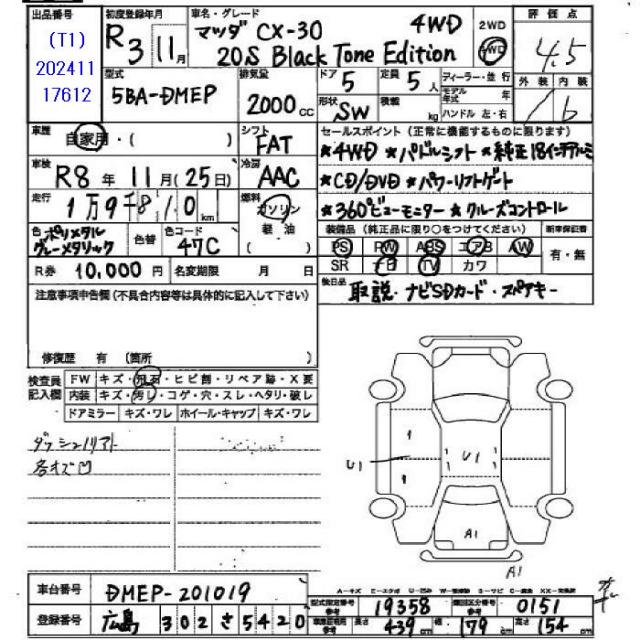 出品番号 初度登録年月 車名・グレード 評価点
(T1) R3 11月 マツダ CX-30 4WD 2WD 4WD 4.5
202411 20S Black Tone Edition
17612 型式 排気量 ドア 定員 ディーラー・並行 外装 内装
5BA-DMEP 2000cc 5 5人 モデル年式 年
形状 SW 積載 kg ハンドル 左・右
車歴 自家用・( ) シフト FAT セールスポイント (正常に機能するものに限ります)
★4WD ★パドルシフト ★純正18インチアルミ
車検 R8年11月(25日) 冷房 AAC ★CD/DVD ★パワーリフトゲート
走行 1万9千810km 燃料 ガソリン 軽油 ( ) ★360°ビューモニター ★クルーズコントロール
色 ポリメタルグレーメタリック 色替 色コード 47C 装備品 (純正品に限り○をつけてください) 新車保証書
PS PW ABS エアB AW 有・無
SR ナビ TV カワ
R券 10,000円 名変期限 月 日 後日品 取説・ナビSDカード・スペアキー
注意事項申告欄 (不具合内容等は具体的に記入して下さい)
修復歴 有 (箇所 )
検査員 FW キズ・飛石・ヒビ割・リペア跡・X要
記入欄 内装 キズ・汚レ・コゲ・穴・スレ・ヘタリ・破レ
ドアミラー キズ・ワレ ホイール・キャップ キズ・ワレ
U1 1 1 U1
A1
A1
車台番号 DMEP-201019
型式指定番号 19358 類別区分番号 0151
登録番号 広島 302 さ 5420 439cm 幅 179cm 高さ 154cm